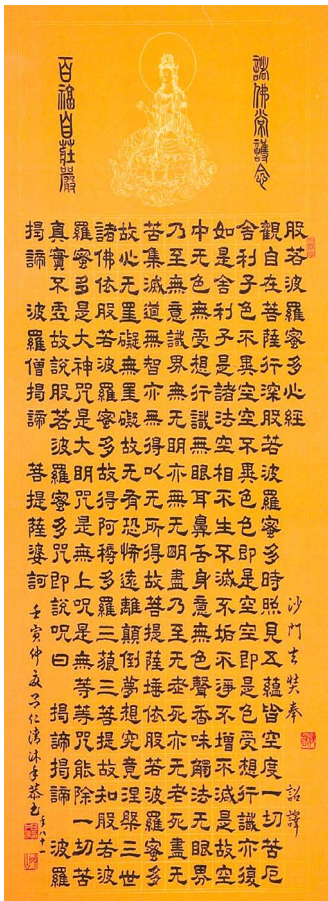 諸佛常護念
百福自莊嚴
般若波羅蜜多心經 沙門玄奘奉 詔譯
觀自在菩薩行深般若波羅蜜多時照見五蘊皆空度一切苦厄
舍利子色不異空空不異色色即是空空即是色受想行識亦復
如是舍利子是諸法空相不生不滅不垢不淨不增不減是故空
中无色無受想行識無眼耳鼻舌身意無色聲香味觸法无眼界
乃至無意識界無无明亦無无明盡乃至无老死亦无老死盡无
苦集滅道無智亦無得以无所得故菩提薩埵依般若波羅蜜多
故心无罣礙無罣礙故无有恐怖遠離顛倒夢想究竟涅槃三世
諸佛依般若波羅蜜多故得阿耨多羅三藐三菩提故知般若波
羅蜜多是大神咒是大明咒是無上咒是無等等咒能除一切苦
真實不虛故說般若波羅蜜多咒即說呪曰 揭諦揭諦 波羅
揭諦 波羅僧揭諦 菩提薩婆訶 壬寅仲夏呂仁清沐手恭書 年八十一